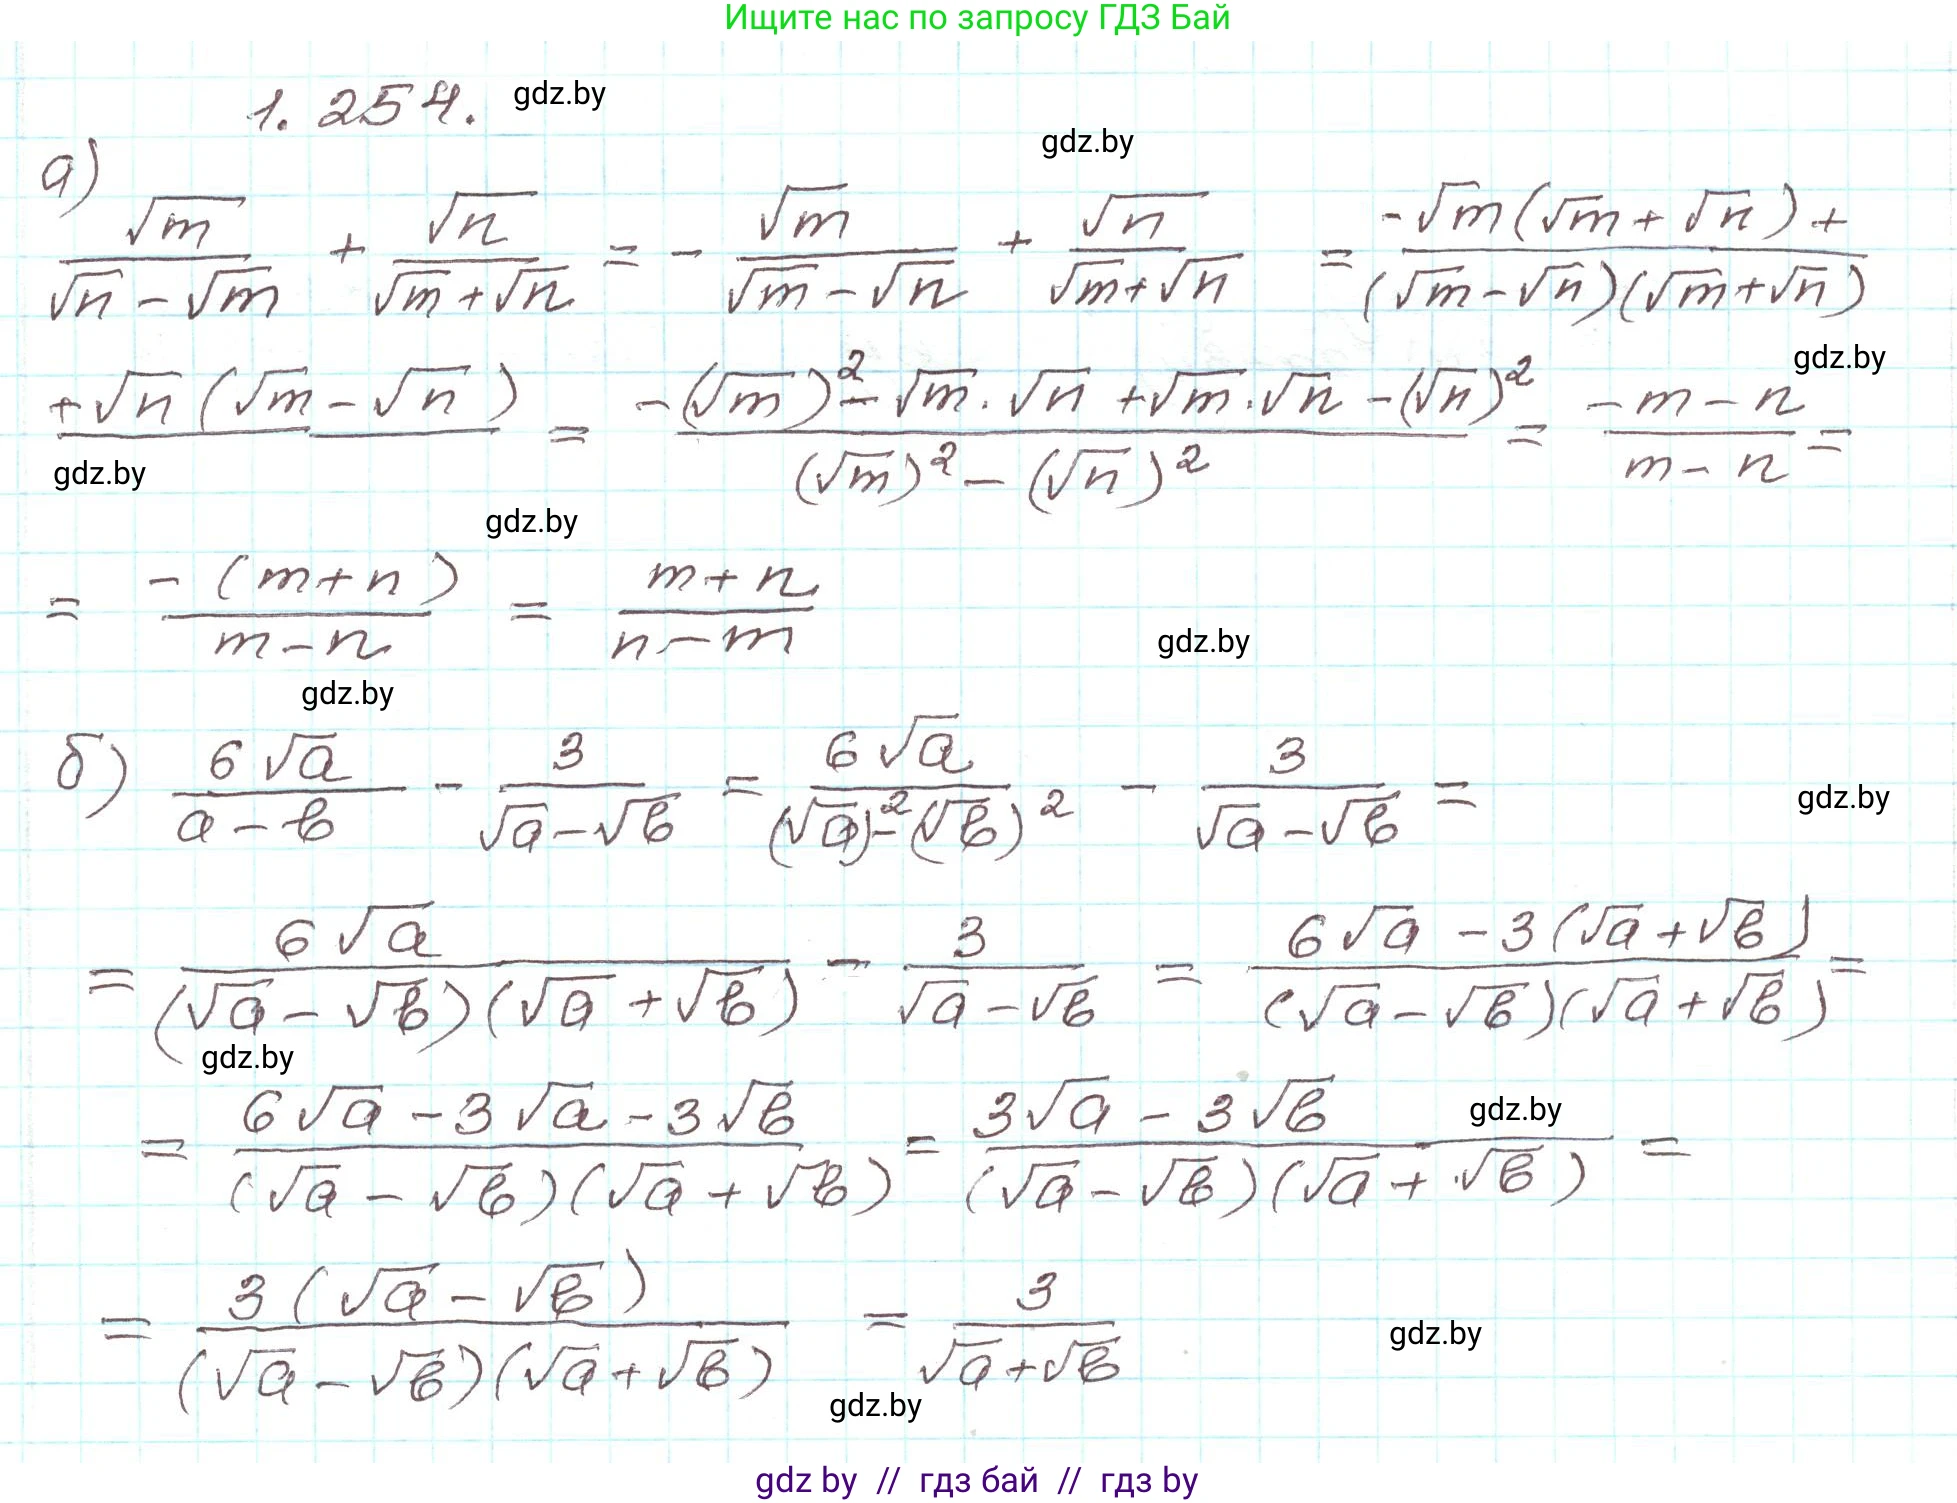 Ищите нас по запросу ГДЗ Бай
1.254. gdz.by
gdz.by
а)
√m/(√n − √m) + √n/(√m + √n) = − √m/(√m − √n) + √n/(√m + √n) = (−√m(√m + √n) +)/((√m − √n)(√m + √n))
gdz.by
+ √n(√m − √n) = (−(√m)² − √m · √n + √m · √n − (√n)²)/((√m)² − (√n)²) = (−m − n)/(m − n) =
gdz.by
gdz.by
= −(m + n)/(m − n) = (m + n)/(n − m)
gdz.by
gdz.by
б) 6√a/(a − b) − 3/(√a − √b) = 6√a/((√a)² − (√b)²) − 3/(√a − √b) =
gdz.by
= 6√a/((√a − √b)(√a + √b)) − 3/(√a − √b) = (6√a − 3(√a + √b))/((√a − √b)(√a + √b)) =
gdz.by
= (6√a − 3√a − 3√b)/((√a − √b)(√a + √b)) = (3√a − 3√b)/((√a − √b)(√a + √b)) =
gdz.by
= 3(√a − √b)/((√a − √b)(√a + √b)) = 3/(√a + √b)
gdz.by
gdz.by
gdz by // гдз бай // гдз by